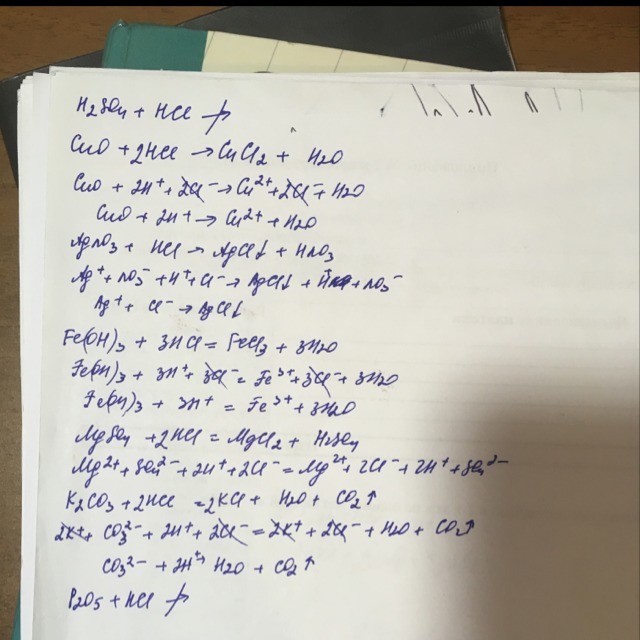 H2SO4 + HCl ↛
CuO + 2HCl → CuCl2 + H2O
CuO + 2H⁺ + 2Cl⁻ → Cu²⁺ + 2Cl⁻ + H2O
CuO + 2H⁺ → Cu²⁺ + H2O
AgNO3 + HCl → AgCl↓ + HNO3
Ag⁺ + NO3⁻ + H⁺ + Cl⁻ → AgCl↓ + H⁺ + NO3⁻
Ag⁺ + Cl⁻ → AgCl↓
Fe(OH)3 + 3HCl = FeCl3 + 3H2O
Fe(OH)3 + 3H⁺ + 3Cl⁻ = Fe³⁺ + 3Cl⁻ + 3H2O
Fe(OH)3 + 3H⁺ = Fe³⁺ + 3H2O
MgSO4 + 2HCl = MgCl2 + H2SO4
Mg²⁺ + SO4²⁻ + 2H⁺ + 2Cl⁻ = Mg²⁺ + 2Cl⁻ + 2H⁺ + SO4²⁻
K2CO3 + 2HCl = 2KCl + H2O + CO2↑
2K⁺ + CO3²⁻ + 2H⁺ + 2Cl⁻ = 2K⁺ + 2Cl⁻ + H2O + CO2↑
CO3²⁻ + 2H⁺ → H2O + CO2↑
P2O5 + HCl ↛